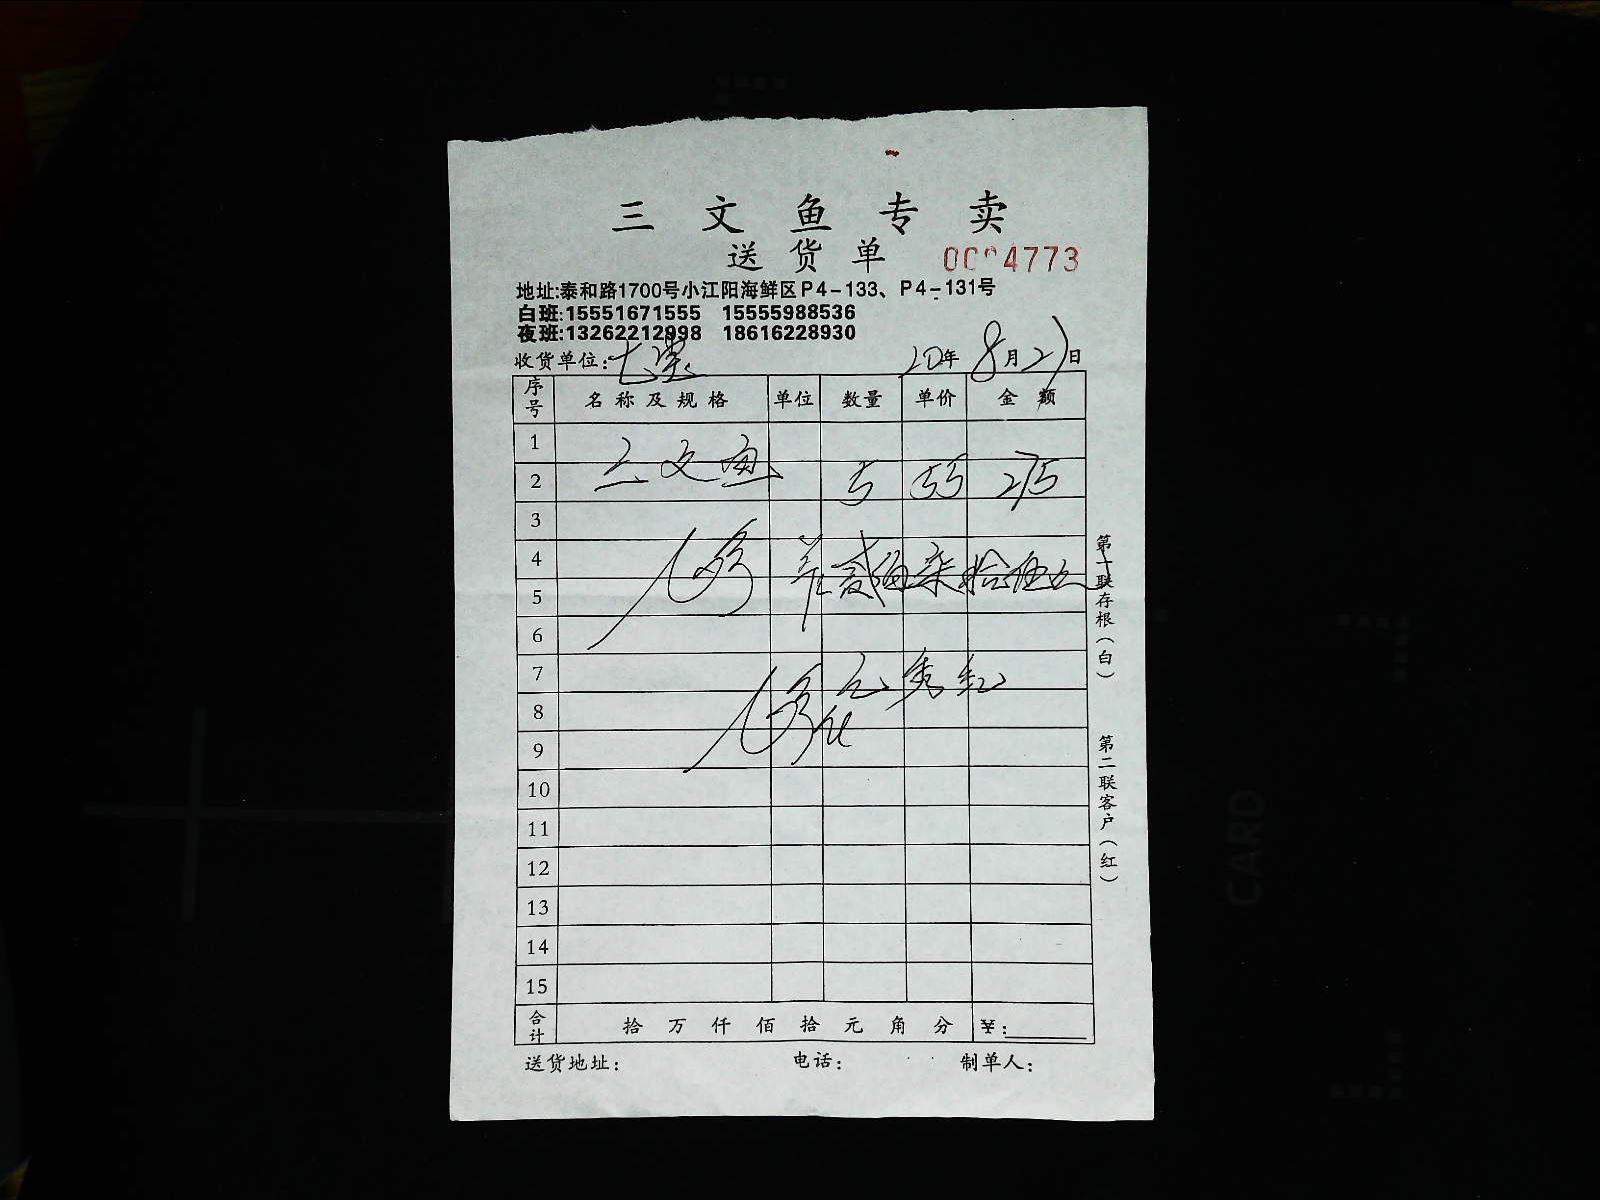 三文鱼专卖
送货单 4773
地址:泰和路1700号小江阳海鲜区P4-133、P4-131号
白班:15551671555 15555988536
夜班:13262212998 18616228930
收货单位: 20年8月21日
序号 名称及规格 单位 数量 单价 金额
1
三文鱼 5 55 275
2
3
4
贰佰柒拾伍元
5
6
7
秀红
8
9
10
11
12
13
14
15
合计 拾 万 仟 佰 拾 元 角 分 ¥:
送货地址: 电话: 制单人:
第一联存根(白)
第二联客户(红)
CARD